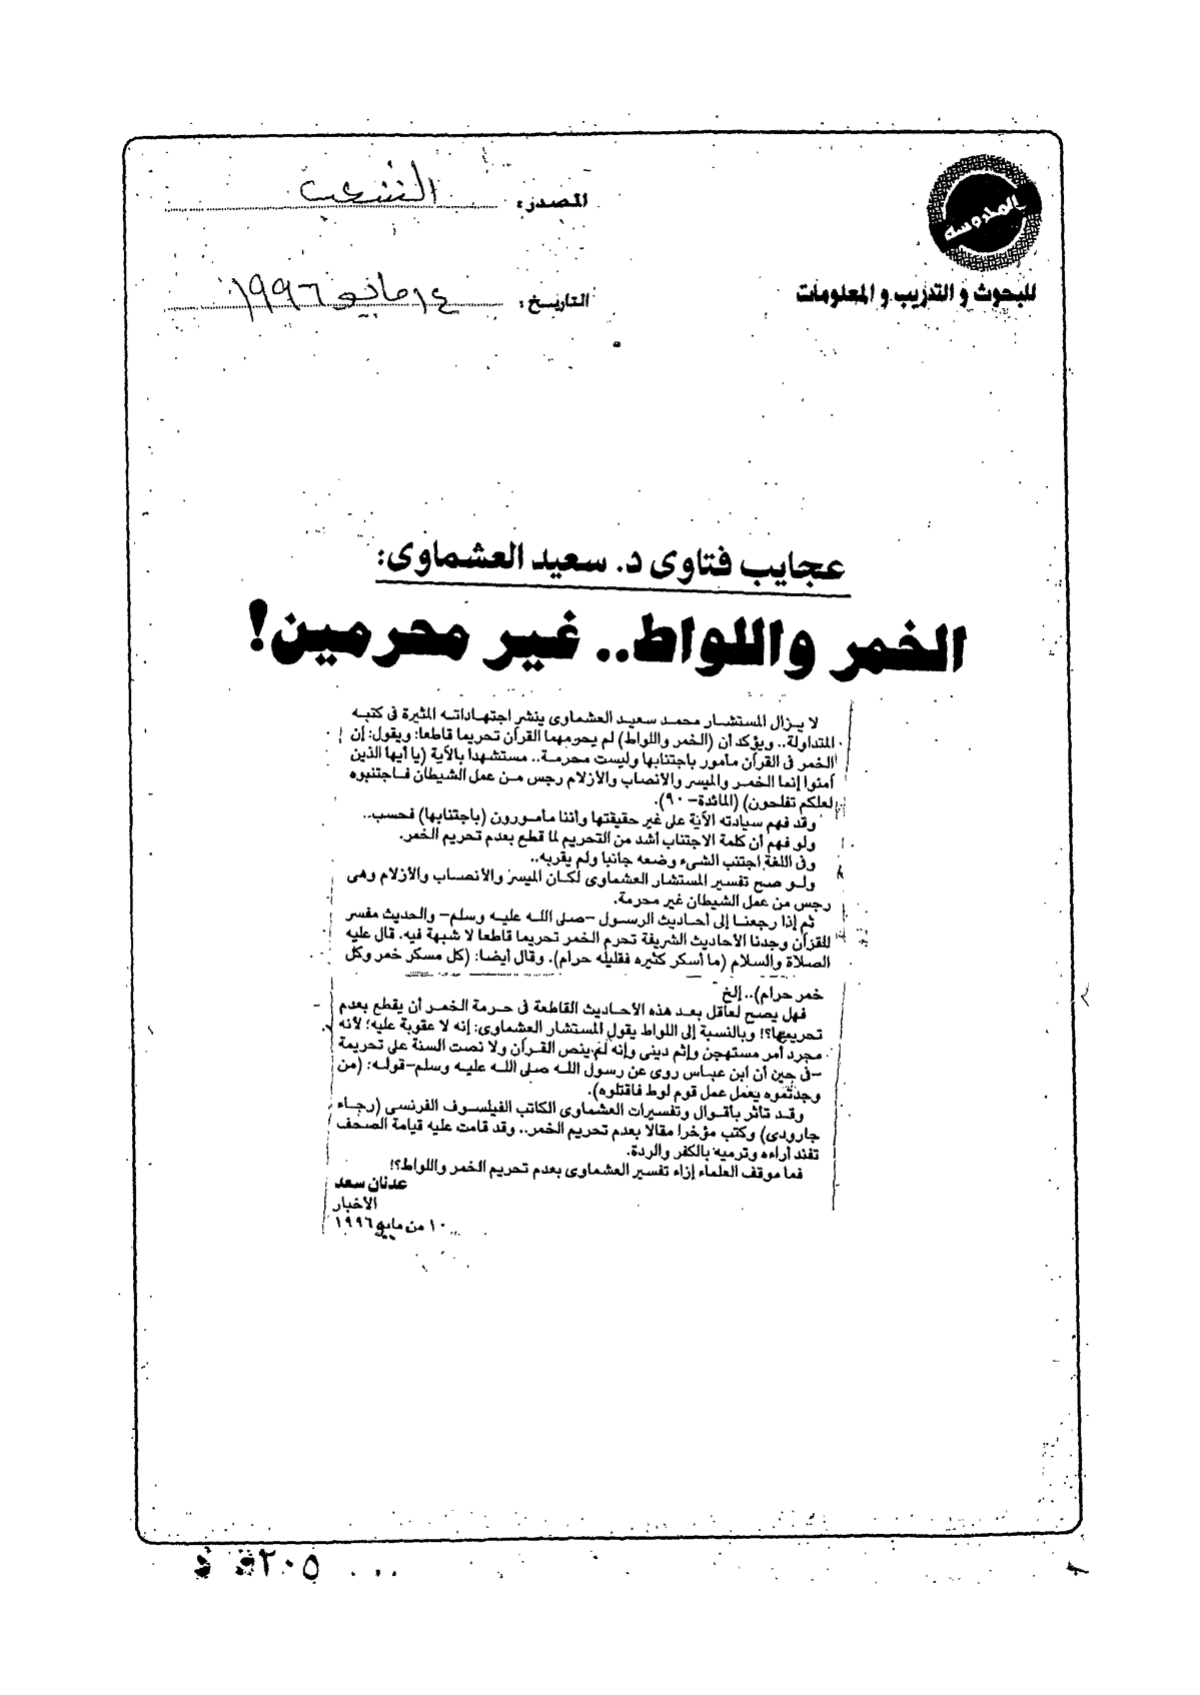 المحروسة
للبحوث و التدريب و المعلومات
المصدر: الشعب
التاريخ: ١٤ مايو ١٩٩٦
عجايب فتاوى د. سعيد العشماوى:
الخمر واللواط.. غير محرمين!
لا يزال المستشار محمد سعيد العشماوى ينشر اجتهاداته المثيرة فى كتبه
المتداولة.. ويؤكد أن (الخمر واللواط) لم يحرمهما القرآن تحريما قاطعا: ويقول: إن
الخمر فى القرآن مأمور باجتنابها وليست محرمة.. مستشهداً بالآية (يا أيها الذين
آمنوا إنما الخمر والميسر والانصاب والأزلام رجس من عمل الشيطان فاجتنبوه
لعلكم تفلحون) (المائدة-٩٠).
وقد فهم سيادته الآية على غير حقيقتها وأننا مأمورون (باجتنابها) فحسب..
ولو فهم أن كلمة الاجتناب أشد من التحريم لما قطع بعدم تحريم الخمر.
وفى اللغة اجتنب الشىء وضعه جانبا ولم يقربه..
ولو صح تفسير المستشار العشماوى لكان الميسر والأنصاب والأزلام وهى
رجس من عمل الشيطان غير محرمة.
ثم إذا رجعنا إلى أحاديث الرسول -صلى الله عليه وسلم- والحديث مفسر
للقرآن وجدنا الأحاديث الشريفة تحرم الخمر تحريما قاطعا لا شبهة فيه. قال عليه
الصلاة والسلام (ما أسكر كثيره فقليله حرام). وقال أيضا: (كل مسكر خمر وكل
خمر حرام).. إلخ
فهل يصح لعاقل بعد هذه الأحاديث القاطعة فى حرمة الخمر أن يقطع بعدم
تحريمها؟! وبالنسبة إلى اللواط يقول المستشار العشماوى: إنه لا عقوبة عليه؛ لأنه
مجرد أمر مستهجن وإثم دينى وإنه لم ينص القرآن ولا نصت السنة على تحريمة
-فى حين أن ابن عباس روى عن رسول الله صلى الله عليه وسلم-قوله: (من
وجدتموه يعمل عمل قوم لوط فاقتلوه).
وقد تاثر بأقوال وتفسيرات العشماوى الكاتب الفيلسوف الفرنسى (رجاء
جارودى) وكتب مؤخرا مقالا بعدم تحريم الخمر.. وقد قامت عليه قيامة الصحف
تفند آراءه وترميه بالكفر والردة.
فما موقف العلماء إزاء تفسير العشماوى بعدم تحريم الخمر واللواط؟!
عدنان سعد
الأخبار
١٠ من مايو ١٩٩٦
٢٠٥